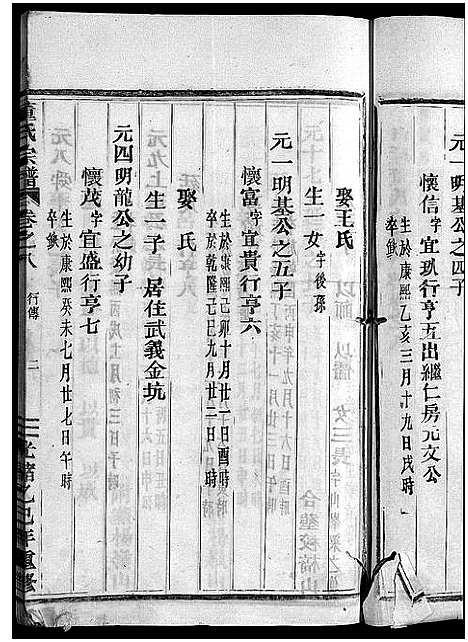 元一明基公之四子
懷信字宜玐行亨五出繼仁房元文公
生於康熙乙亥三月十九日戌時
卒缺
娶王氏
生一女字後孫
元一明基公之五子
懷富字宜貴行亨六
生於康熙己卯十月廿一日酉時
卒於乾隆己巳九月廿二日
娶氏
生一子居住武義金坑
元四明龍公之幼子
懷茂字宜盛行亨七
生於康熙癸未七月廿七日午時
卒缺
董氏宗譜 卷之八 行傳 二 光緒乙巳年重修